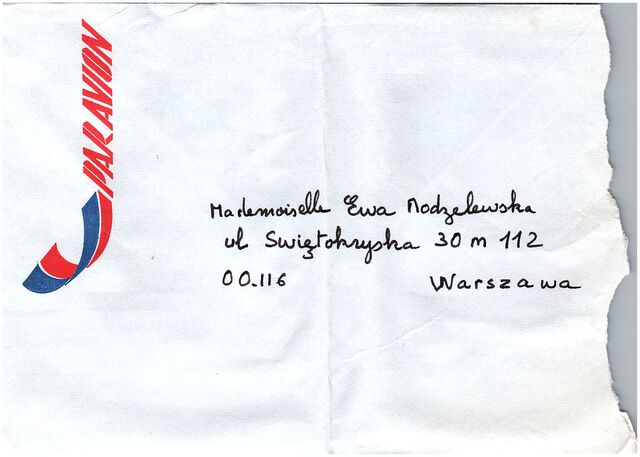 PAR AVION
Mademoiselle Ewa Modzelewska
ul. Swiętokryska 30 m 112
00.116 Warszawa